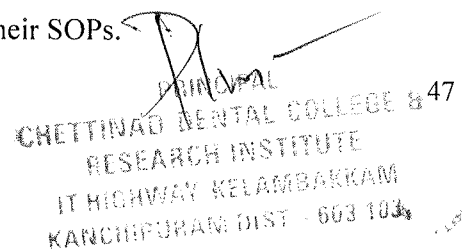 heir SOPs.
PRINCIPAL
47
CHETTINAD DENTAL COLLEGE &
RESEARCH INSTITUTE
IT HIGHWAY KELAMBAKKAM
KANCHIPURAM DIST - 603 103.